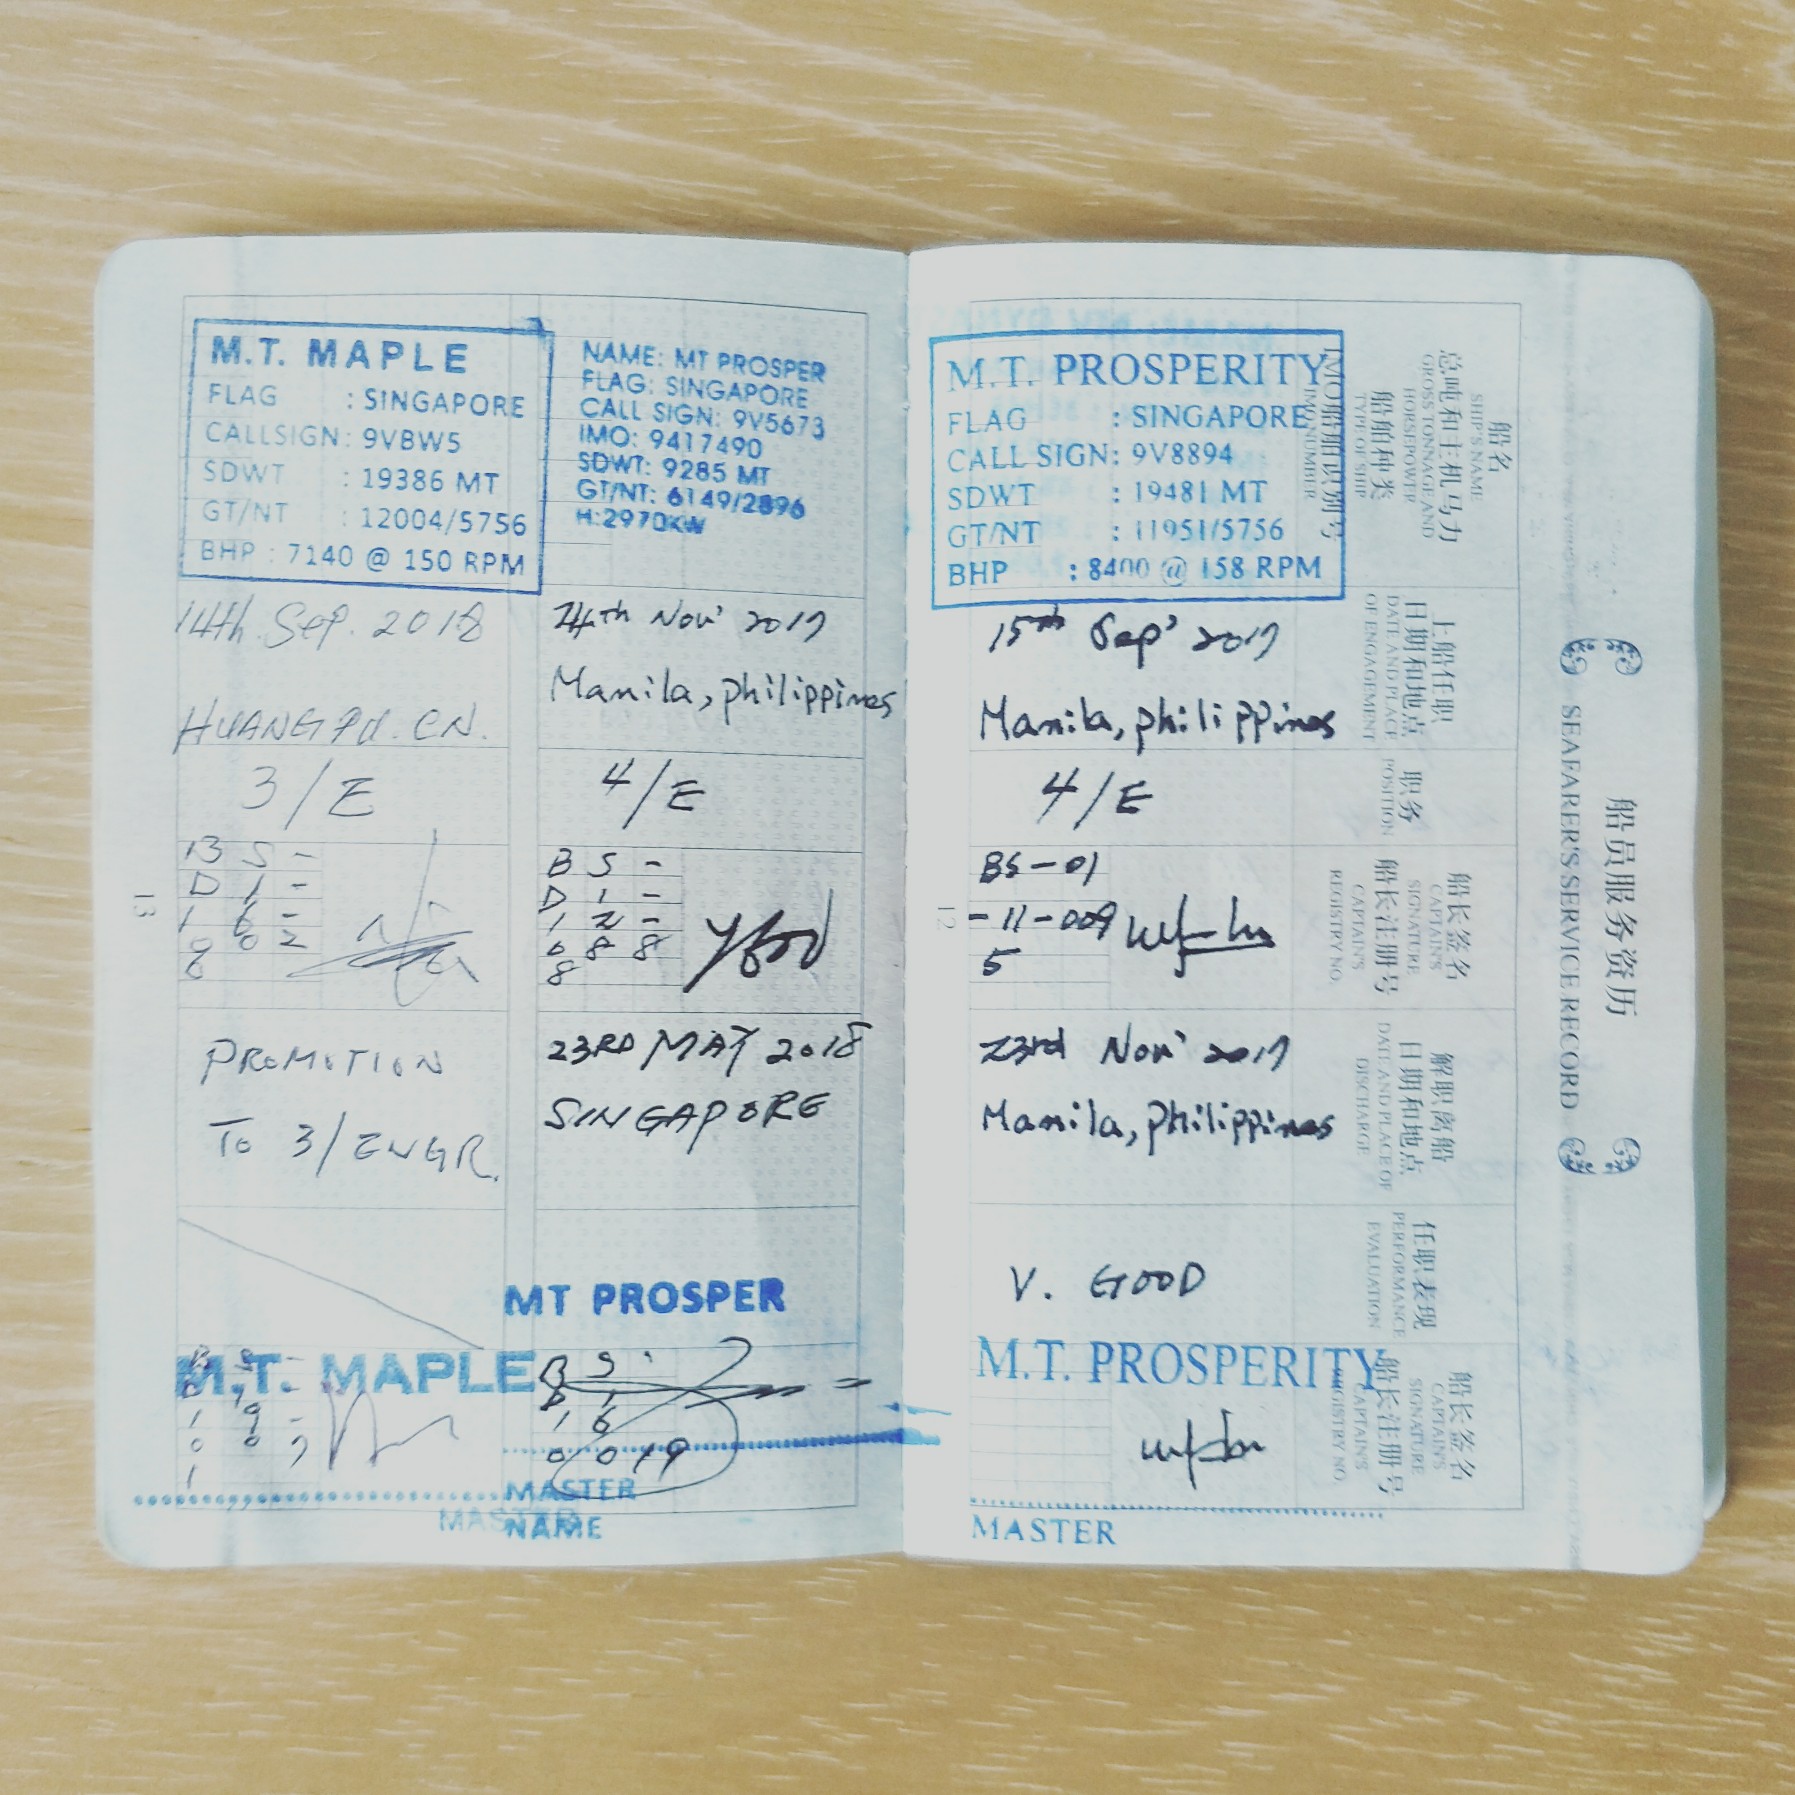 M.T. MAPLE
FLAG : SINGAPORE
CALLSIGN: 9VBW5
SDWT : 19386 MT
GT/NT : 12004/5756
BHP : 7140 @ 150 RPM
14th. Sep. 2018
HUANGPU. CN.
3/E
B S -
D 1 -
1 6 -
8 0 2
8
PROMOTION
To 3/ENGR.
M.T. MAPLE
MASTER
13
NAME: MT PROSPER
FLAG: SINGAPORE
CALL SIGN: 9V5673
IMO: 9417490
SDWT: 9285 MT
GT/NT: 6149/2896
H:2970KW
24th Nov' 2017
Manila, philippines
4/E
B S -
D 1 -
1 2 -
0 8 8
8
23RD MAY 2018
SINGAPORE
MT PROSPER
MASTER
NAME
M.T. PROSPERITY
FLAG : SINGAPORE
CALL SIGN: 9V8894
SDWT : 19481 MT
GT/NT : 11951/5756
BHP : 8400 @ 158 RPM
15th Sep' 2017
Manila, philippines
4/E
BS-01
-11-009
5
23rd Nov' 2017
Manila, philippines
V. GOOD
M.T. PROSPERITY
MASTER
12
船员服务资历
SEAFARER'S SERVICE RECORD
船名
SHIP'S NAME
总吨和主机马力
GROSS TONNAGE AND
HORSEPOWER
船舶种类
TYPE OF SHIP
IMO船舶识别号
IMO NUMBER
上船任职
日期和地点
DATE AND PLACE
OF ENGAGEMENT
职务
POSITION
船长签名
CAPTAIN'S
SIGNATURE
船长注册号
CAPTAIN'S
REGISTRY NO.
解职离船
日期和地点
DATE AND PLACE OF
DISCHARGE
任职表现
PERFORMANCE
EVALUATION
船长签名
CAPTAIN'S
SIGNATURE
船长注册号
CAPTAIN'S
REGISTRY NO.